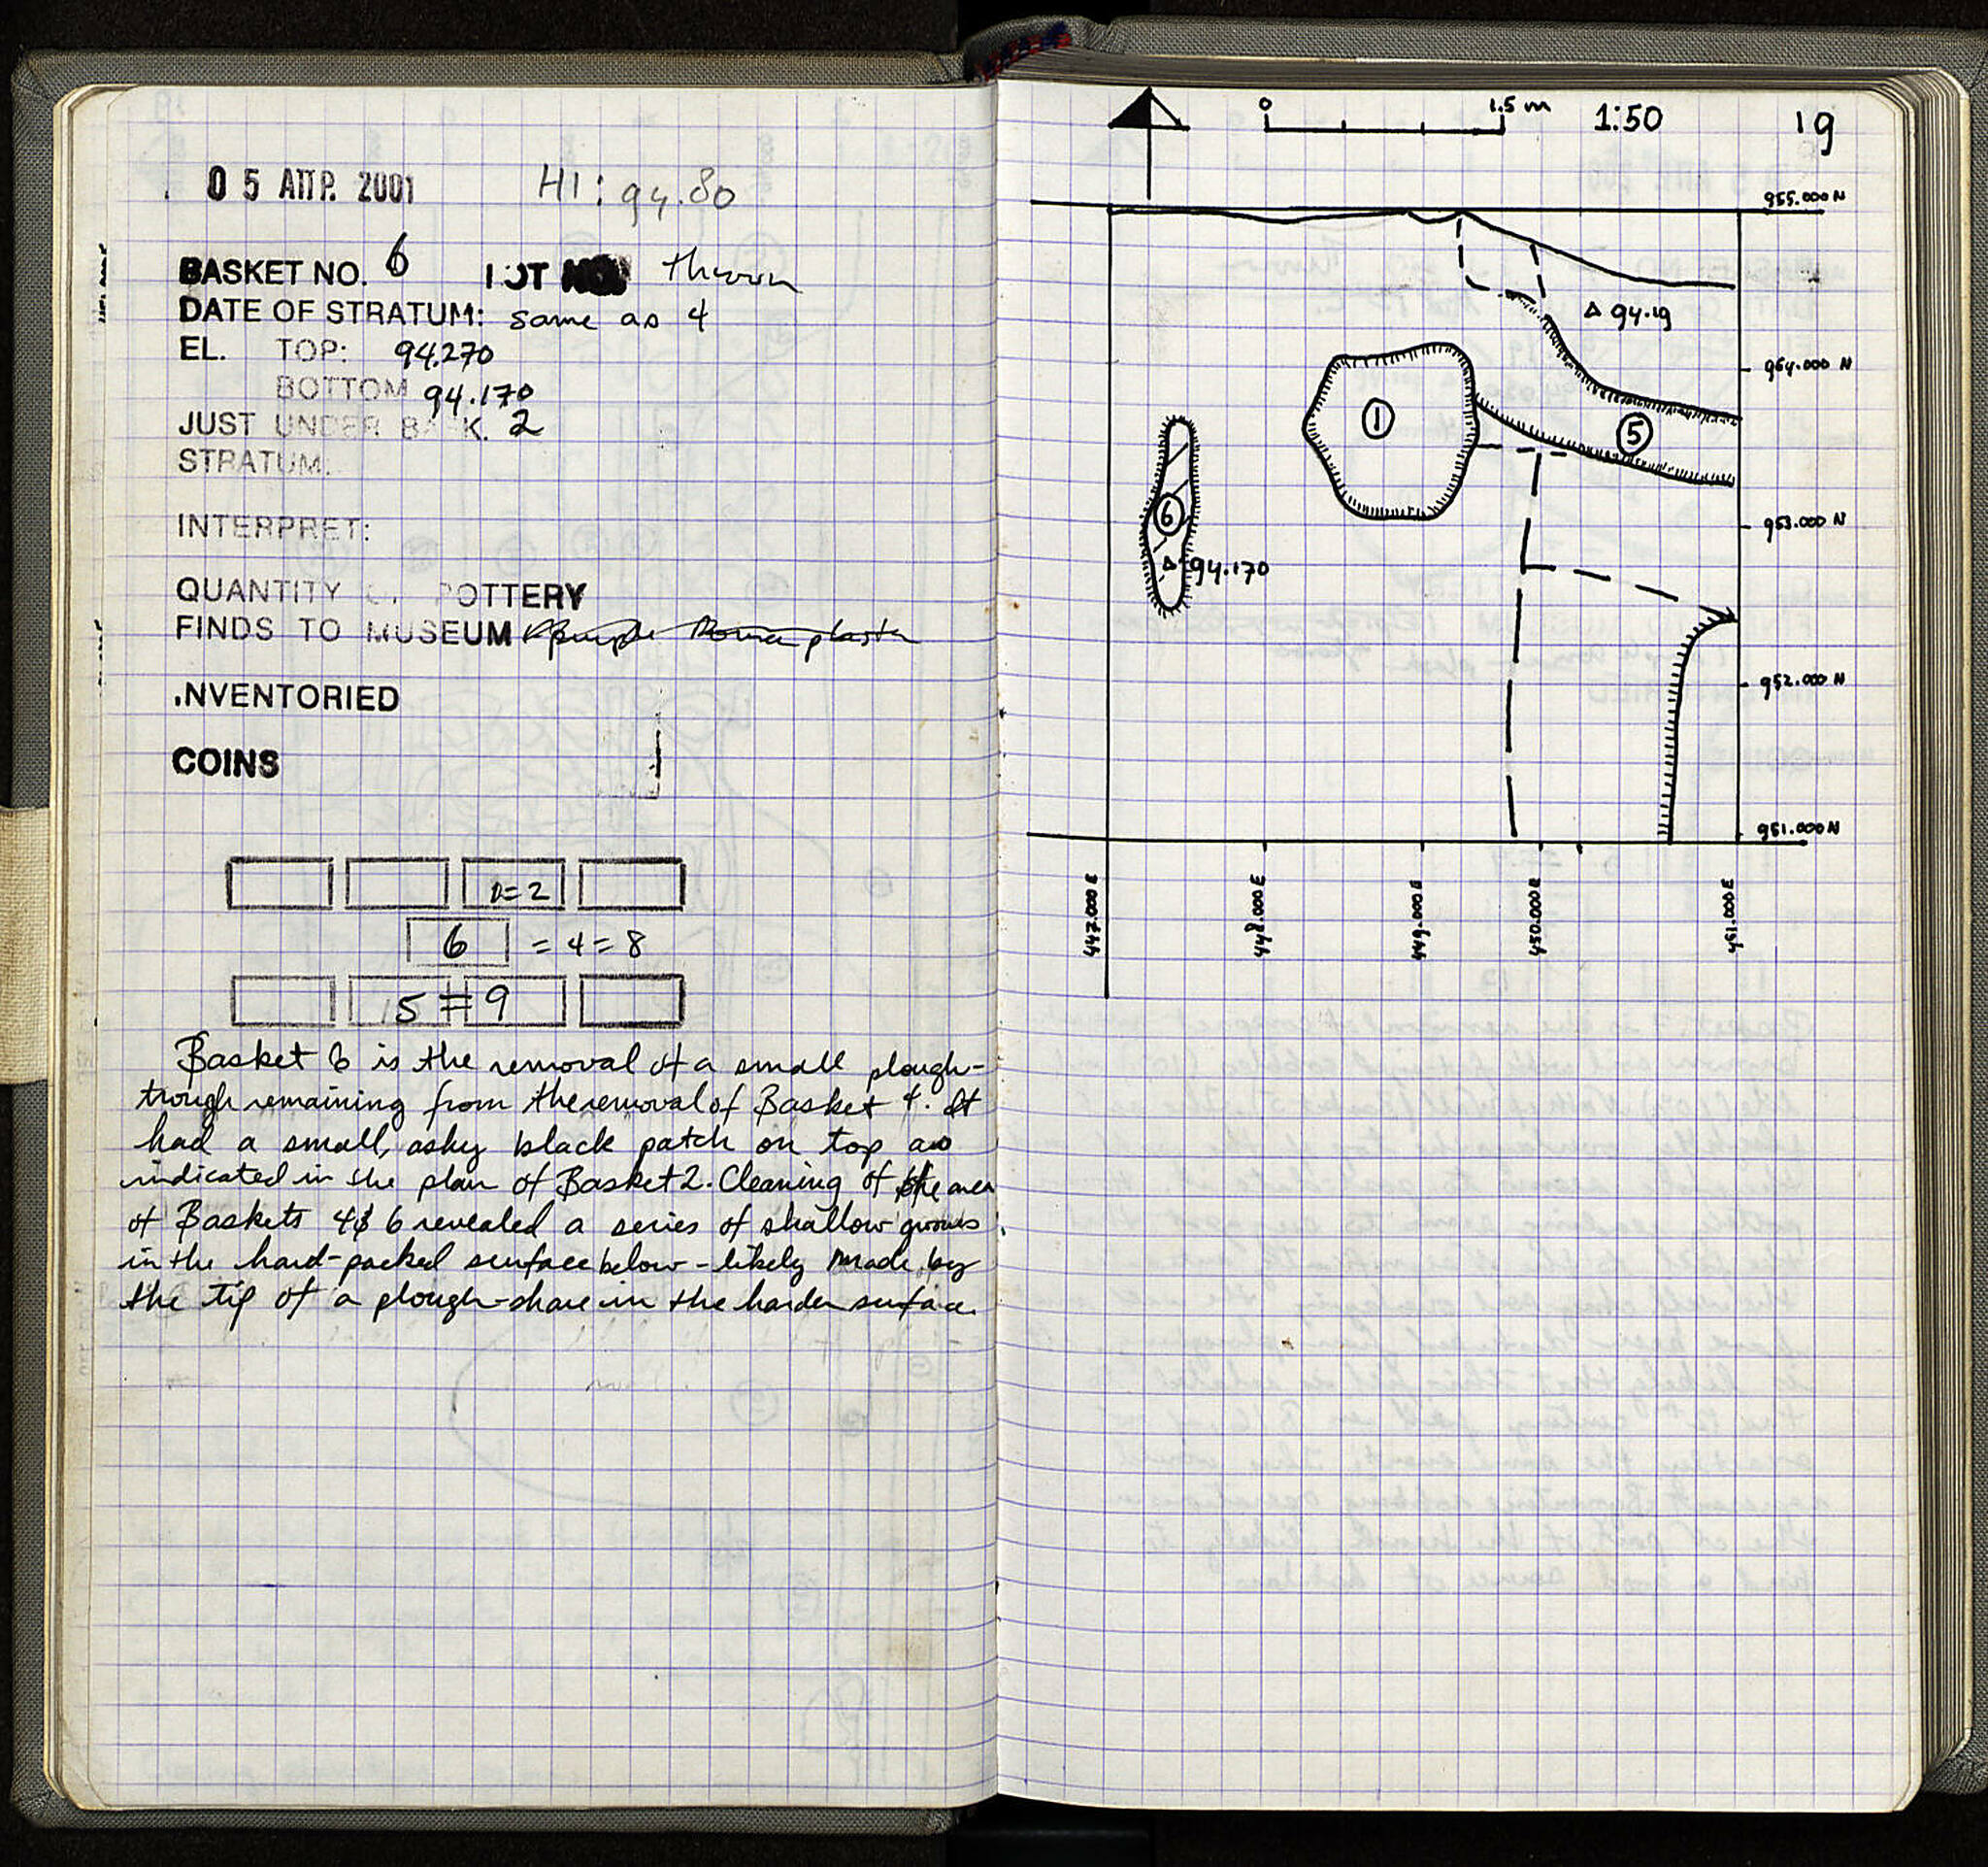 05 ΑΠΡ. 2001 HI: 94.80
BASKET NO. 6 LOT NO. thrown
DATE OF STRATUM: same as 4
EL. TOP: 94.270
BOTTOM 94.170
JUST UNDER BASK. 2
STRATUM:
INTERPRET:
QUANTITY OF POTTERY
FINDS TO MUSEUM purple Roman plaster
INVENTORIED
COINS
0=2
6 = 4 = 8
5 = 9
Basket 6 is the removal of a small plough-
trough remaining from the removal of Basket 4. It
had a small, ashy black patch on top as
indicated in the plan of Basket 2. Cleaning of the area
of Baskets 4 & 6 revealed a series of shallow grooves
in the hard-packed surface below - likely made by
the tip of a plough-share in the harder surface.
0 1.5 m 1:50 19
955.000 N
Δ 94.19
954.000 N
1
5
6
953.000 N
Δ 94.170
952.000 N
951.000 N
447.000 E
448.000 E
449.000 E
450.000 E
451.000 E